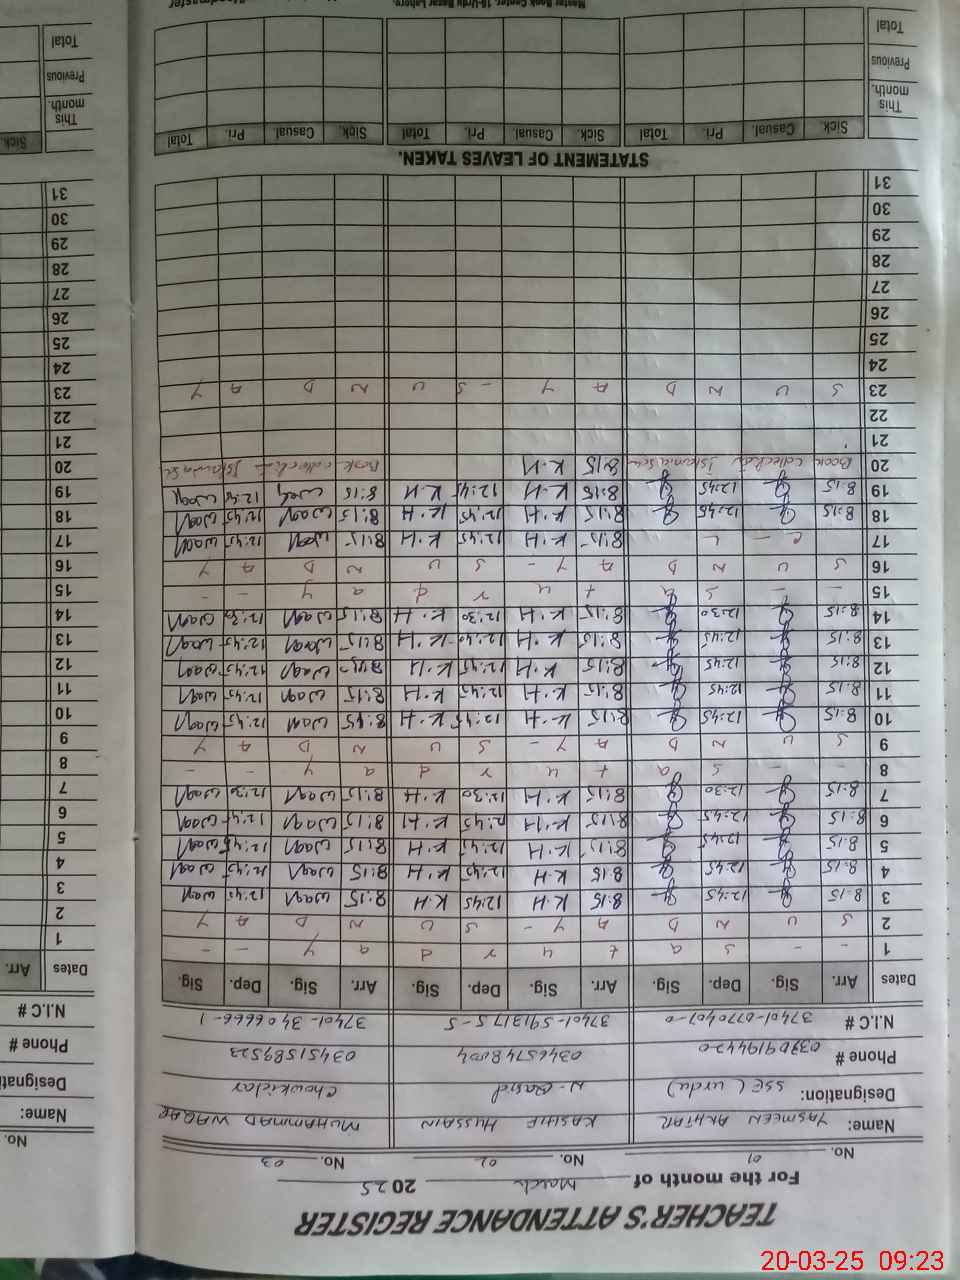 TEACHER'S ATTENDANCE REGISTER
For the month of March 2025
No. 01 No. 02 No. 03
Name: YASMEEN AKHTAR KASHIF HUSSAIN MUHAMMAD WAQAR
Designation: SSE (urdu) N-Qasid Chowkidar
Phone # 03465748004 03451589523
N.I.C # 37401-0770407-0 37401-5913175-5 37401-3406666-1
Dates Arr. Sig. Dep. Sig. Arr. Sig. Dep. Sig. Arr. Sig. Dep. Sig.
1 - - S a t u r d a y - -
2 S U N D A Y - S U N D A Y
3 8:15 12:45 8:15 K.H 12:45 K.H 8:15 waqr 12:45 waqr
4 8:15 12:45 8:15 K.H 12:45 K.H 8:15 waqr 12:45 waqr
5 8:15 12:45 8:15 K.H 12:45 K.H 8:15 waqr 12:45 waqr
6 8:15 12:45 8:15 K.H 12:45 K.H 8:15 waqr 12:45 waqr
7 8:15 12:30 8:15 K.H 12:30 K.H 8:15 waqr 12:30 waqr
8 - - S a t u r d a y - -
9 S U N D A Y - S U N D A Y
10 8:15 12:45 8:15 K.H 12:45 K.H 8:45 waqr 12:45 waqr
11 8:15 12:45 8:15 K.H 12:45 K.H 8:15 waqr 12:45 waqr
12 8:15 12:45 8:15 K.H 12:45 K.H 8:15 waqr 12:45 waqr
13 8:15 12:45 8:15 K.H 12:45 K.H 8:15 waqr 12:45 waqr
14 8:15 12:30 8:15 K.H 12:30 K.H 8:15 waqr 12:30 waqr
15 - - S a t u r d a y - -
16 S U N D A Y - S U N D A Y
17 C - L 8:15 K.H 12:45 K.H 8:15 waqr 12:45 waqr
18 8:15 12:45 8:15 K.H 12:45 K.H 8:15 waqr 12:45 waqr
19 8:15 12:45 8:15 K.H 12:45 K.H 8:15 waqr 12:45 waqr
20 Book collection 8:15 K.H Book collection
21
22
23 S U N D A Y - S U N D A Y
24
25
26
27
28
29
30
31
STATEMENT OF LEAVES TAKEN.
Sick. Casual. Pri. Total Sick. Casual. Pri. Total Sick. Casual. Pri. Total
This month.
Previous
Total
Master Book Center, 18-Urdu Bazar Lahore.
No.
Name:
Designati
Phone #
N.I.C #
Dates Arr.
1
2
3
4
5
6
7
8
9
10
11
12
13
14
15
16
17
18
19
20
21
22
23
24
25
26
27
28
29
30
31
Sick.
This month.
Previous
Total
20-03-25 09:23